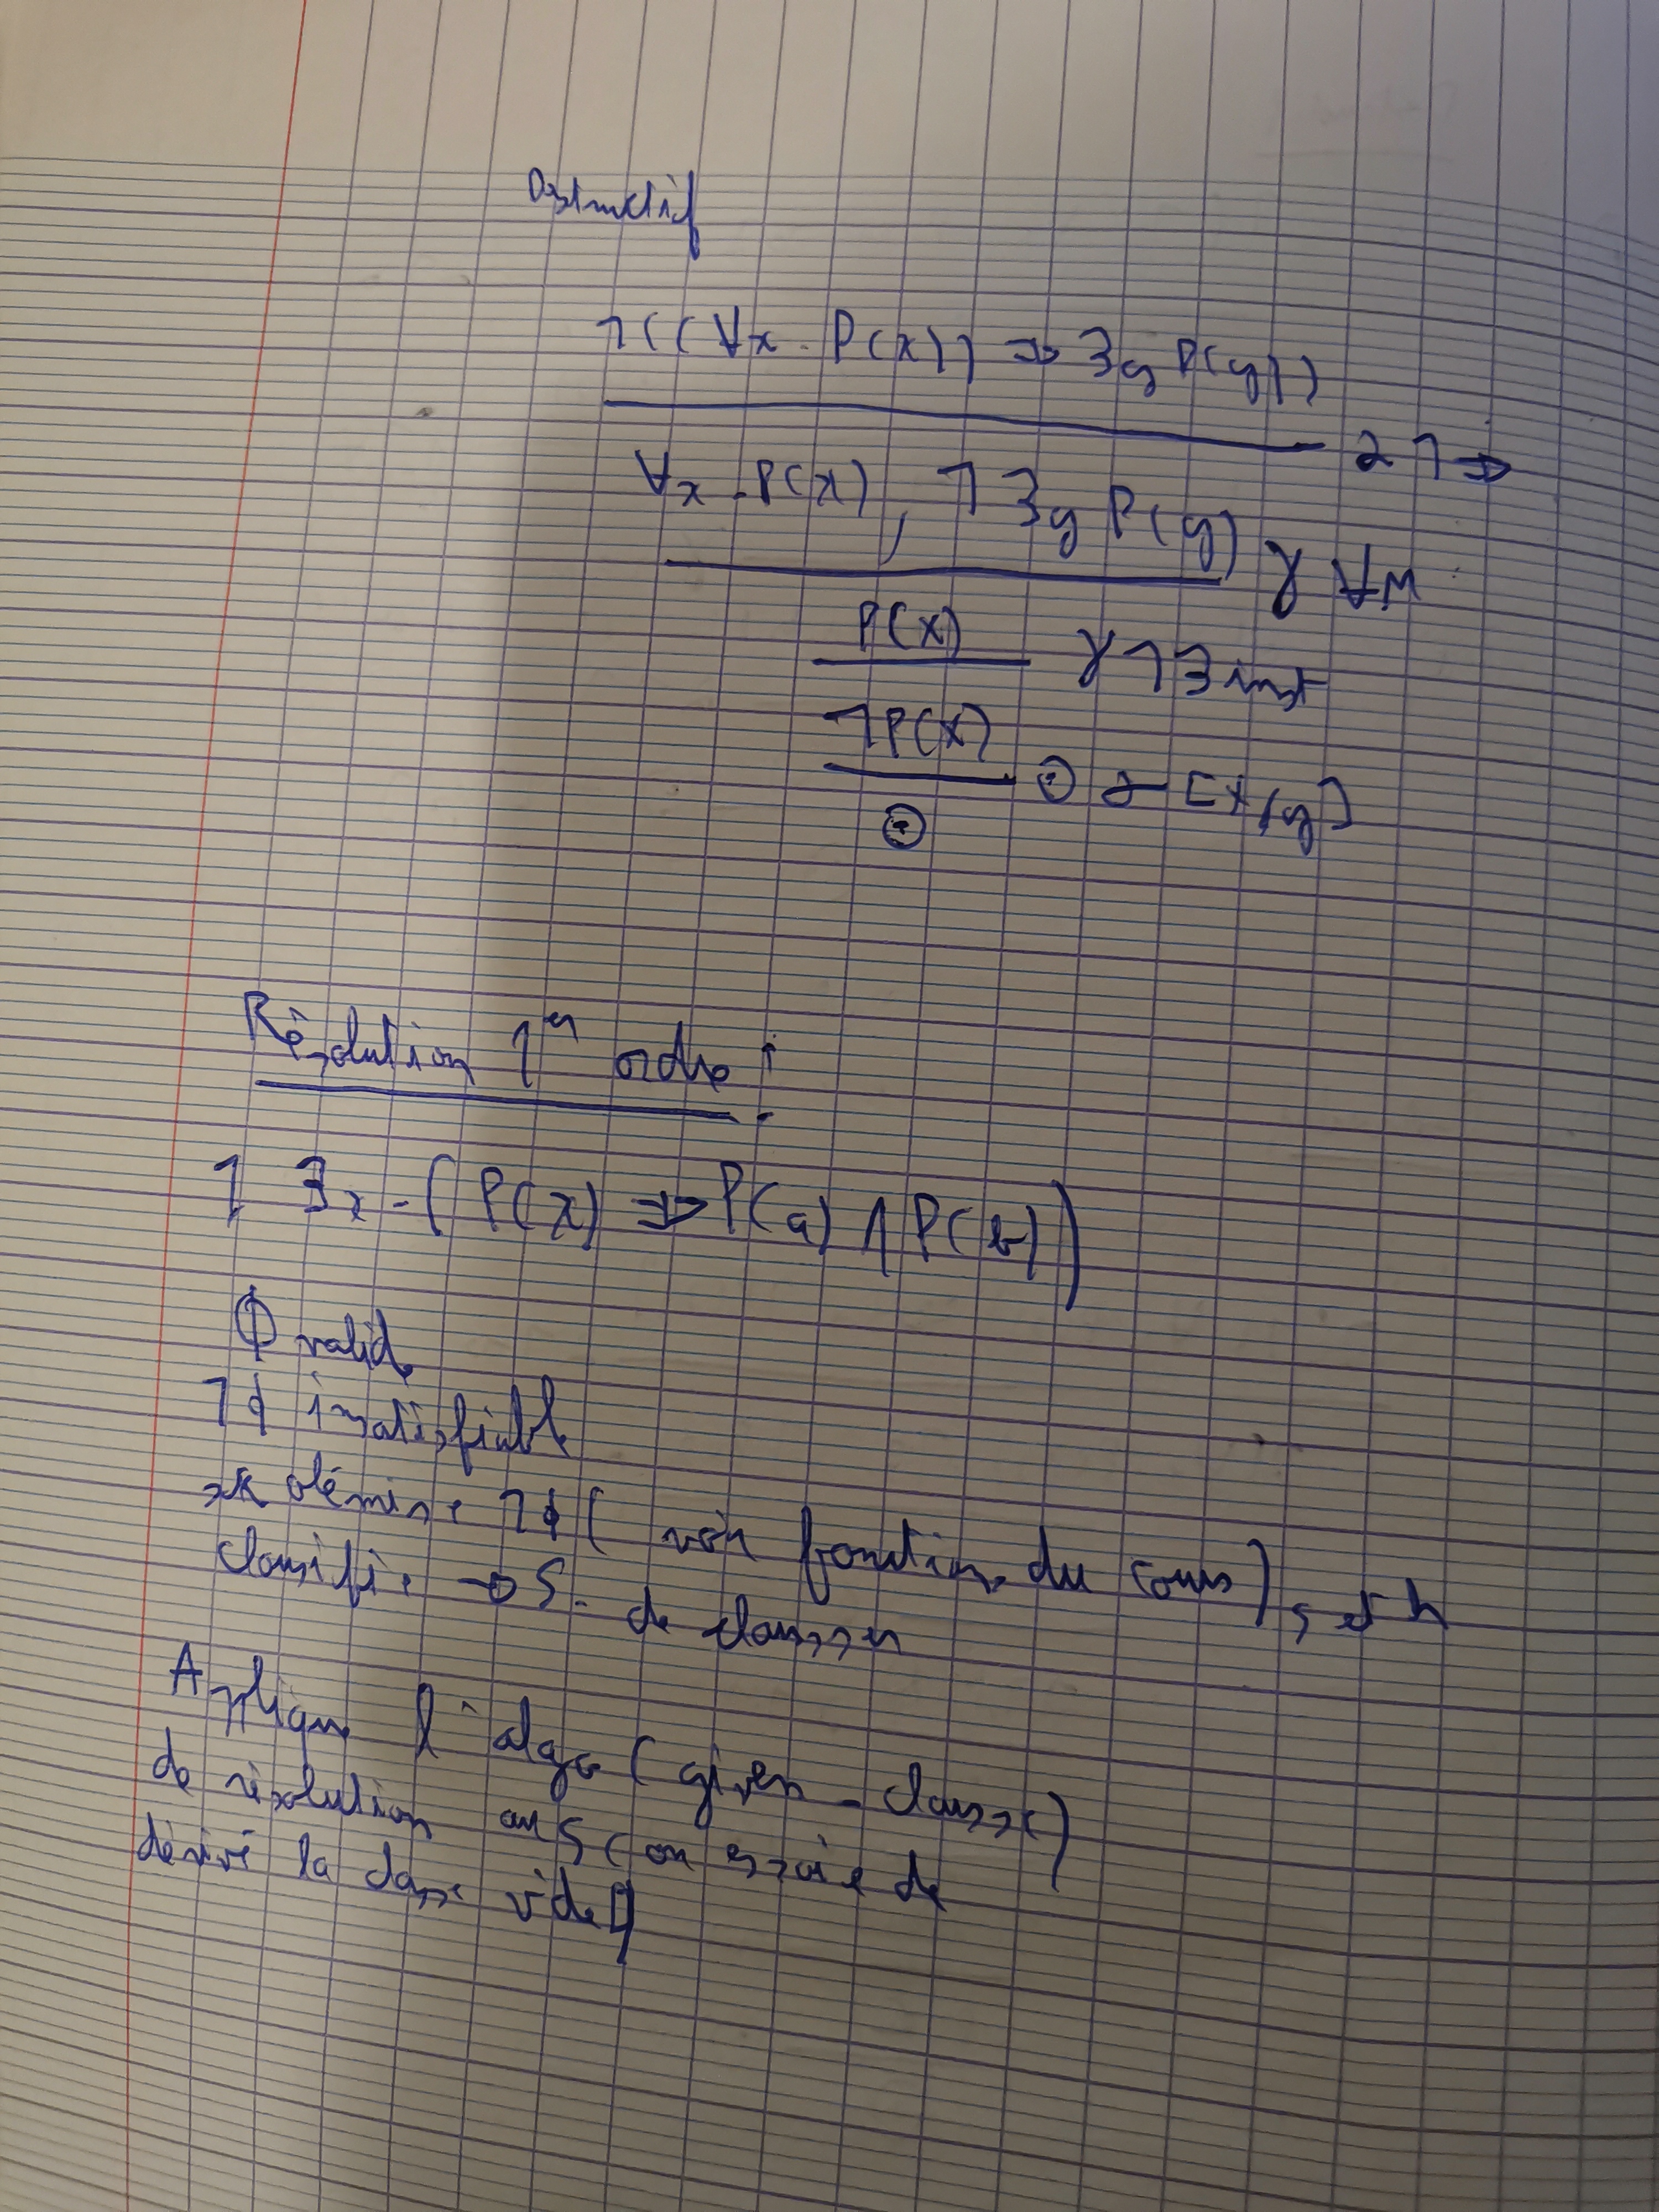 Destructif
¬((∀x. P(x)) ⇒ ∃y P(y))
α¬⇒
∀x.P(x), ¬∃y P(y)
γ∀M
P(X)
γ¬∃inst
¬P(X)
⊙ [X/y]
⊙
Résolution 1er ordre :
1 ∃x.(P(x) ⇒ P(a) ∧ P(b))
Φ valide
¬Φ insatisfiable
skolémise ¬Φ (voir fonctions du cours), s et h
clausifie → S. de clauses
Applique l'algo (given_clause)
de résolution au S (on essaie de
dérivé la clause vide □